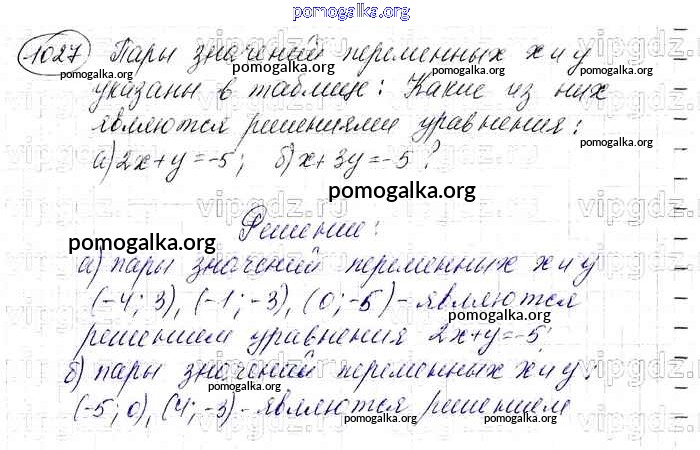 pomogalka.org
1027 Пары значений переменных x и y
pomogalka.org pomogalka.org
указаны в таблице: Какие из них
являются решениями уравнения:
pomogalka.org pomogalka.org
а) 2x+y=-5; б) x+3y=-5?
pomogalka.org
Решение:
pomogalka.org
а) пары значений переменных x и y
pomogalka.org pomogalka.org
(-4; 3), (-1; -3), (0; -5) - являются
решением уравнения 2x+y=-5;
pomogalka.org
б) пары значений переменных x и y:
pomogalka.org pomogalka.org
(-5; 0), (4; -3) - являются решением
pomogalka.org